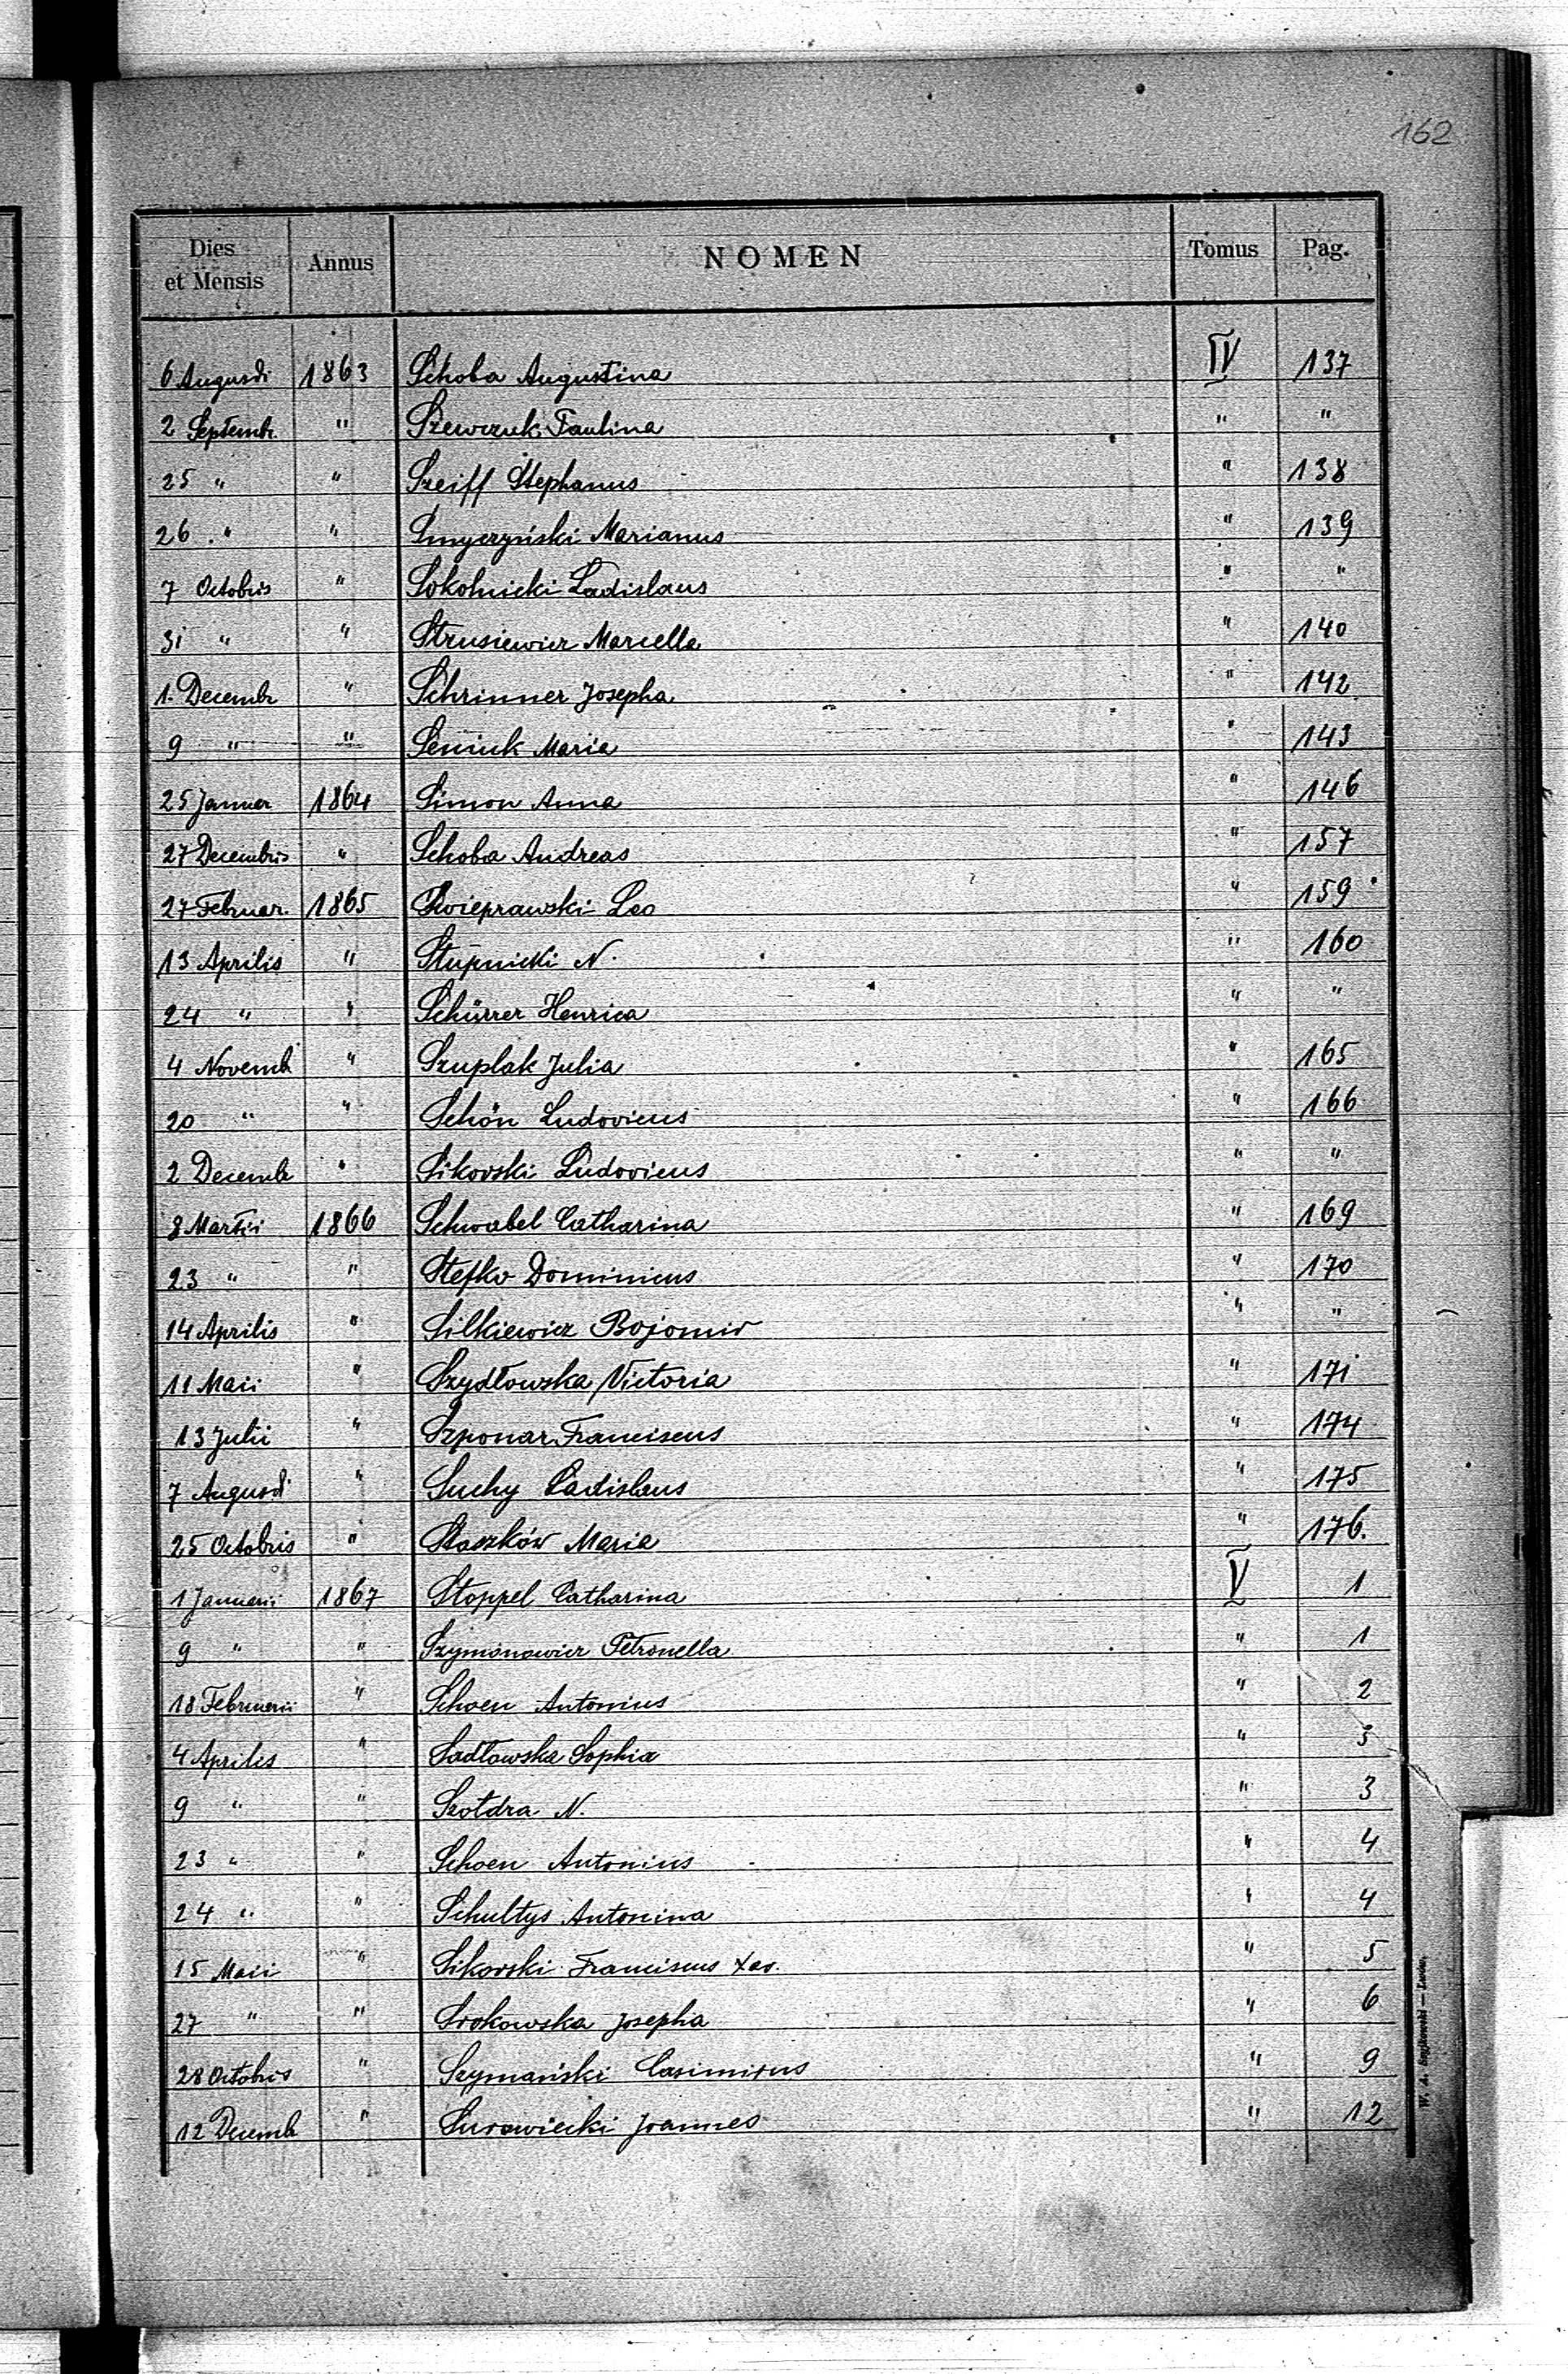 162
Dies et Mensis Annus NOMEN Tomus Pag.
6 Augusti 1863 Schoba Augustina IV 137
2 Septembr. " Szewczuk Paulina " "
25 " " Szeiff Stephanus " 138
26 " " Smyczyński Marianus " 139
7 Octobris " Sokolnicki Ladislaus " "
31 " " Strusiewicz Marcella " 140
1. Decembr " Schrinner Josepha " 142
9 " " Seniuk Maria " 143
25 Januar 1864 Simon Anna " 146
27 Decembris " Schoba Andreas " 157
27 Februar. 1865 Leo " 159
13 Aprilis " Stupnicki N. " 160
24 " " Schürrer Henrica " "
4 Novemb " Szuplak Julia " 165
20 " " Schön Ludovicus " 166
2 Decemb " Sikorski Ludovicus " "
8 Martii 1866 Schwabel Catharina " 169
23 " " Stefko Dominicus " 170
14 Aprilis " Silkiewicz Bojomir " "
11 Maii " Szydłowska Victoria " 171
13 Julii " Szponar Franciscus " 174
7 August " Suchy Ladislaus " 175
25 Octobris " Staszków Maria " 176.
1 Januarii 1867 Stoppel Catharina V 1
9 " " Szymonowicz Petronella " 1
18 Februarii " Schoen Antonius " 2
4 Aprilis " Sadłowska Sophia " 3
9 " " Szołdra N. " 3
23 " " Schoen Antonius " 4
24 " " Schultys Antonina " 4
15 Maii " Sikorski Franciscus Xav. " 5
27 " " Srokowska Josepha " 6
28 Octobris " Szymański Casimirus " 9
12 Decemb " Surowiecki Joannes " 12